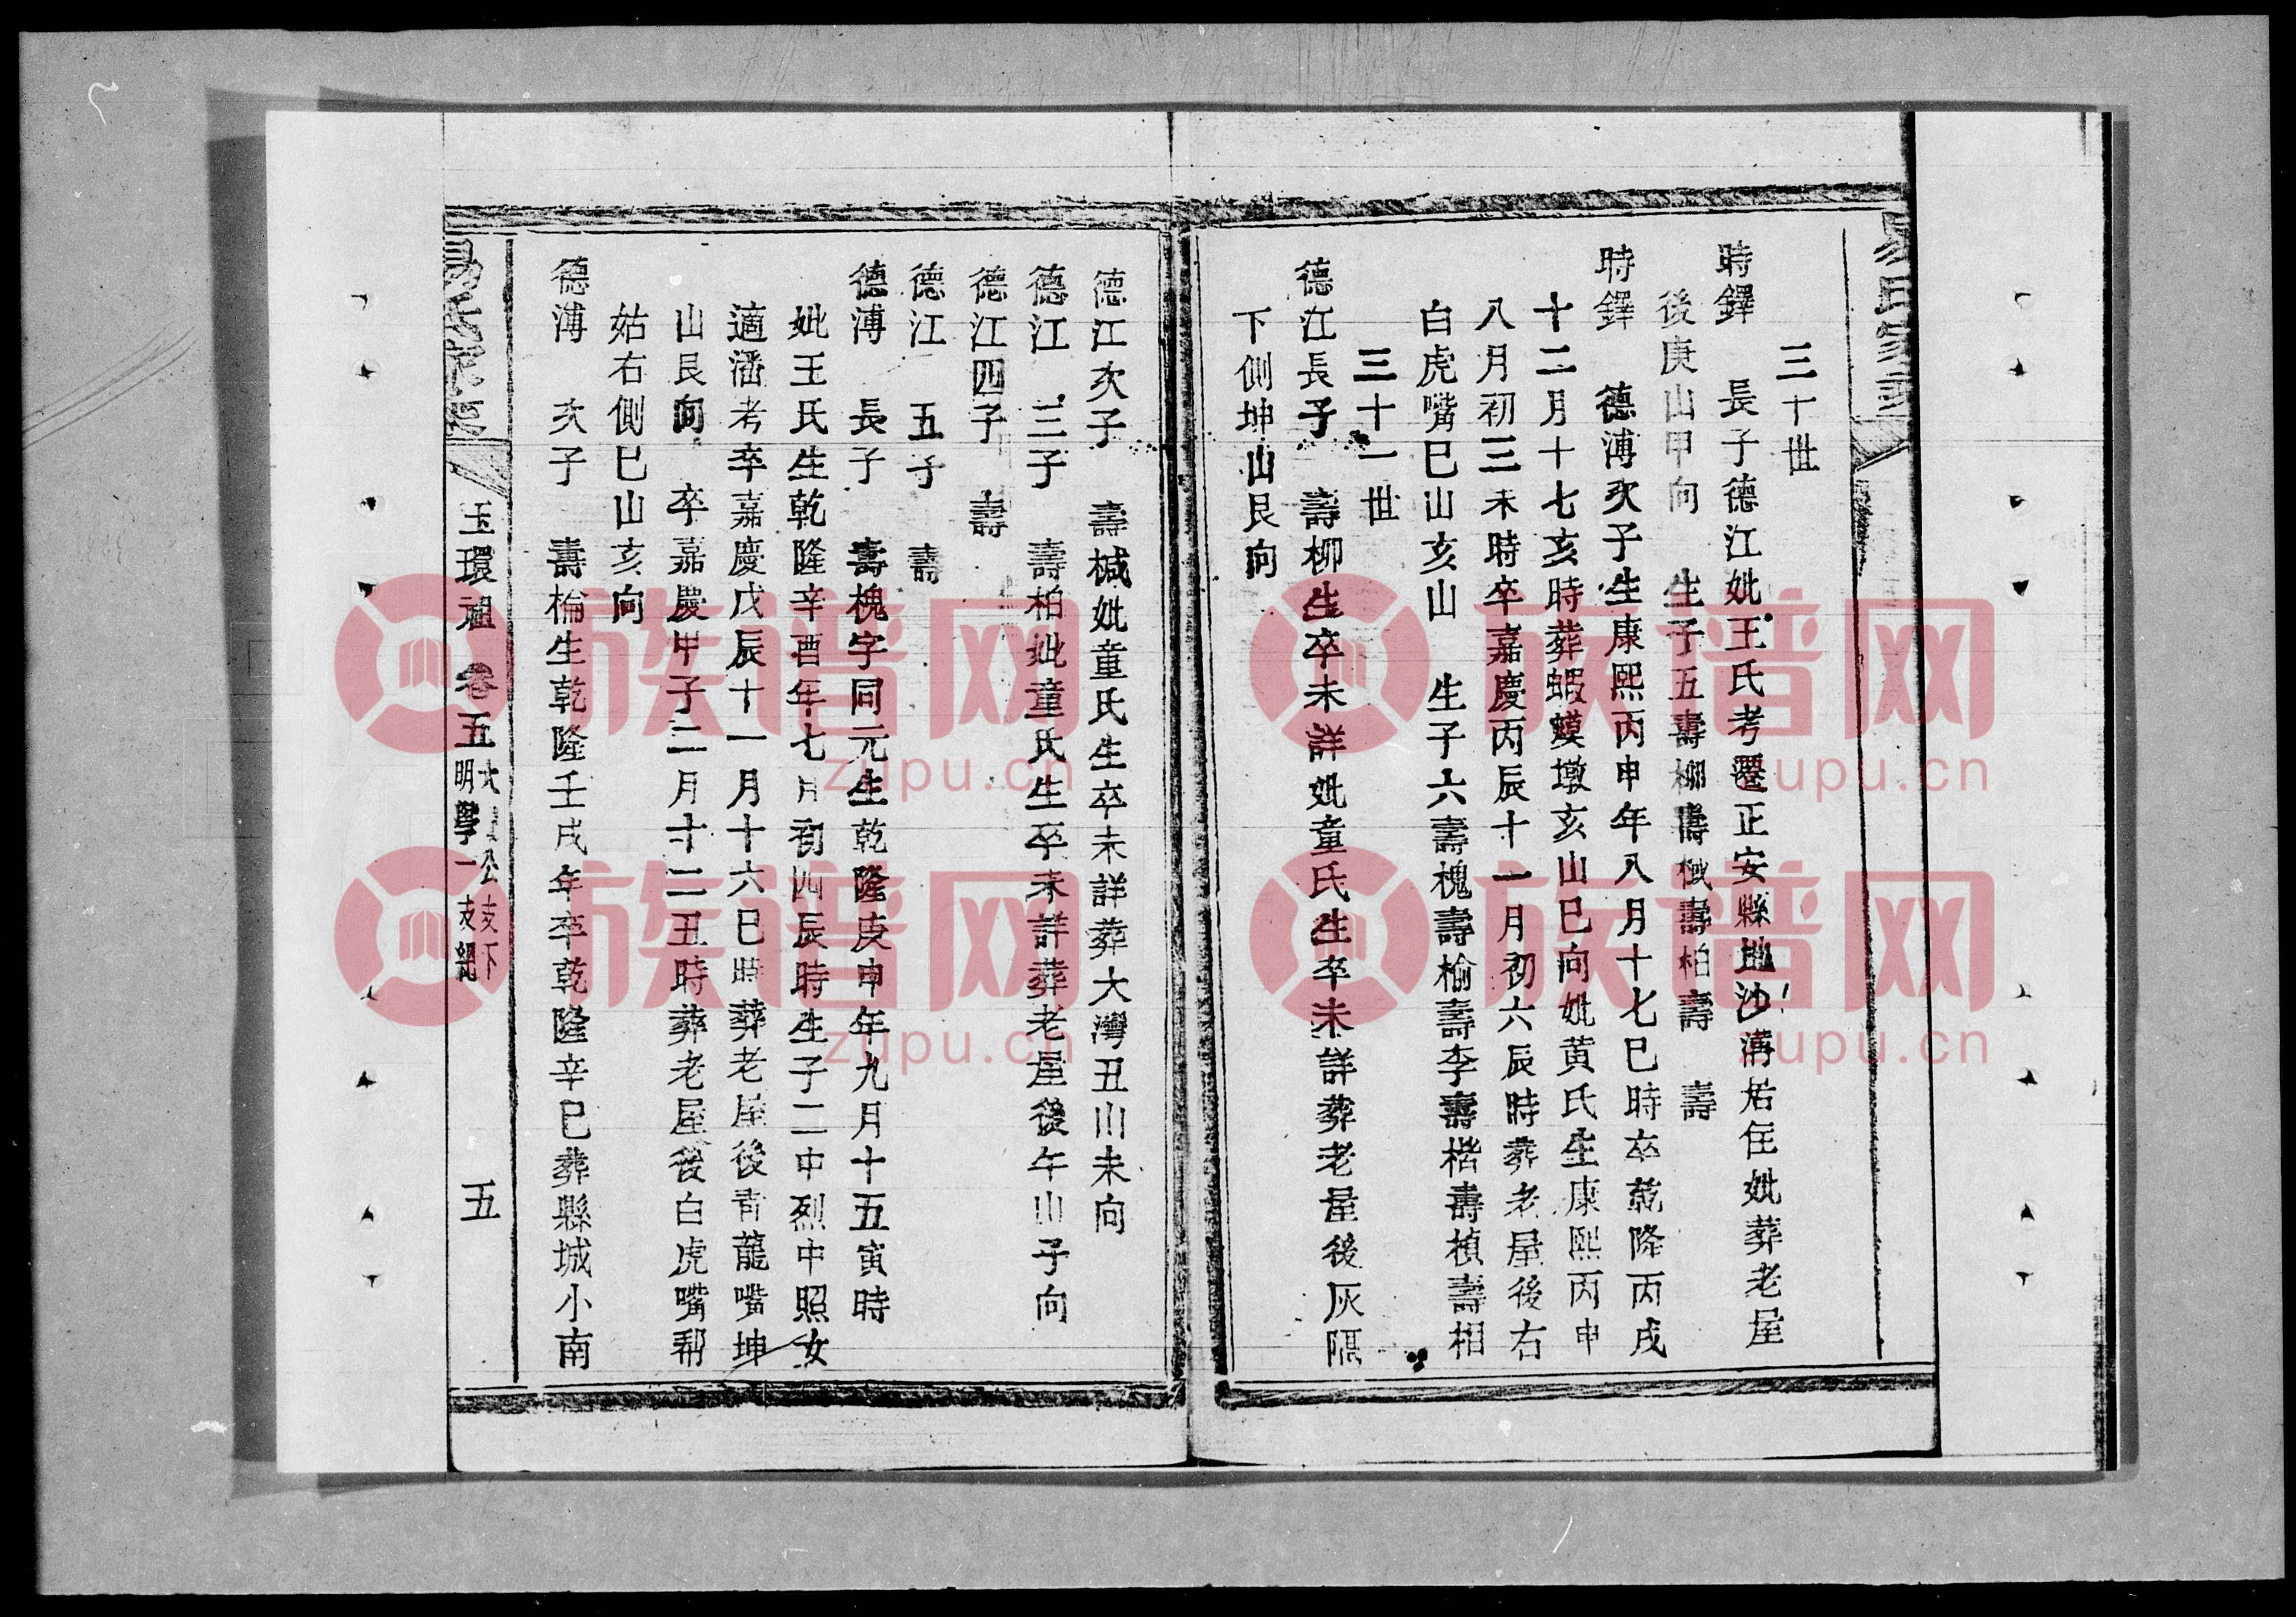 三十世
時鐸 長子德江妣王氏考遷正安縣地沙溝居住妣葬老屋
後庚山甲向 生子五壽柳壽椷壽柏壽 壽
時鐸 德溥次子生康熙丙申年八月十七巳時卒乾隆丙戌
十二月十七亥時葬蝦蟆墩亥山巳向妣黃氏生康熙丙申
八月初三未時卒嘉慶丙辰十一月初六辰時葬老屋後右
白虎嘴巳山亥山 生子六壽槐壽棆壽李壽楷壽楨壽相
三十一世
德江長子 壽柳生卒未詳妣童氏生卒未詳葬老屋後灰隔
下側坤山艮向
德江次子 壽椷妣童氏生卒未詳葬大灣丑山未向
德江 三子 壽柏妣童氏生卒未詳葬老屋後午山子向
德江四子 壽
德江 五子 壽
德溥 長子 壽槐字同元生乾隆庚申年九月十五寅時
妣王氏生乾隆辛酉年七月初四辰時生子二中烈中照女
適潘考卒嘉慶戊辰十一月十六巳時葬老屋後青龍嘴坤
山艮向 卒嘉慶甲子二月十二丑時葬老屋後白虎嘴郡
姑右側巳山亥向
德溥 次子 壽棆生乾隆壬戌年卒乾隆辛巳葬縣城小南
易氏家
玉環祖 卷五 公支下
明學一支 五
族谱网
zupu.cn
族谱网
zupu.cn
族谱网
zupu.cn
族谱网
zupu.cn